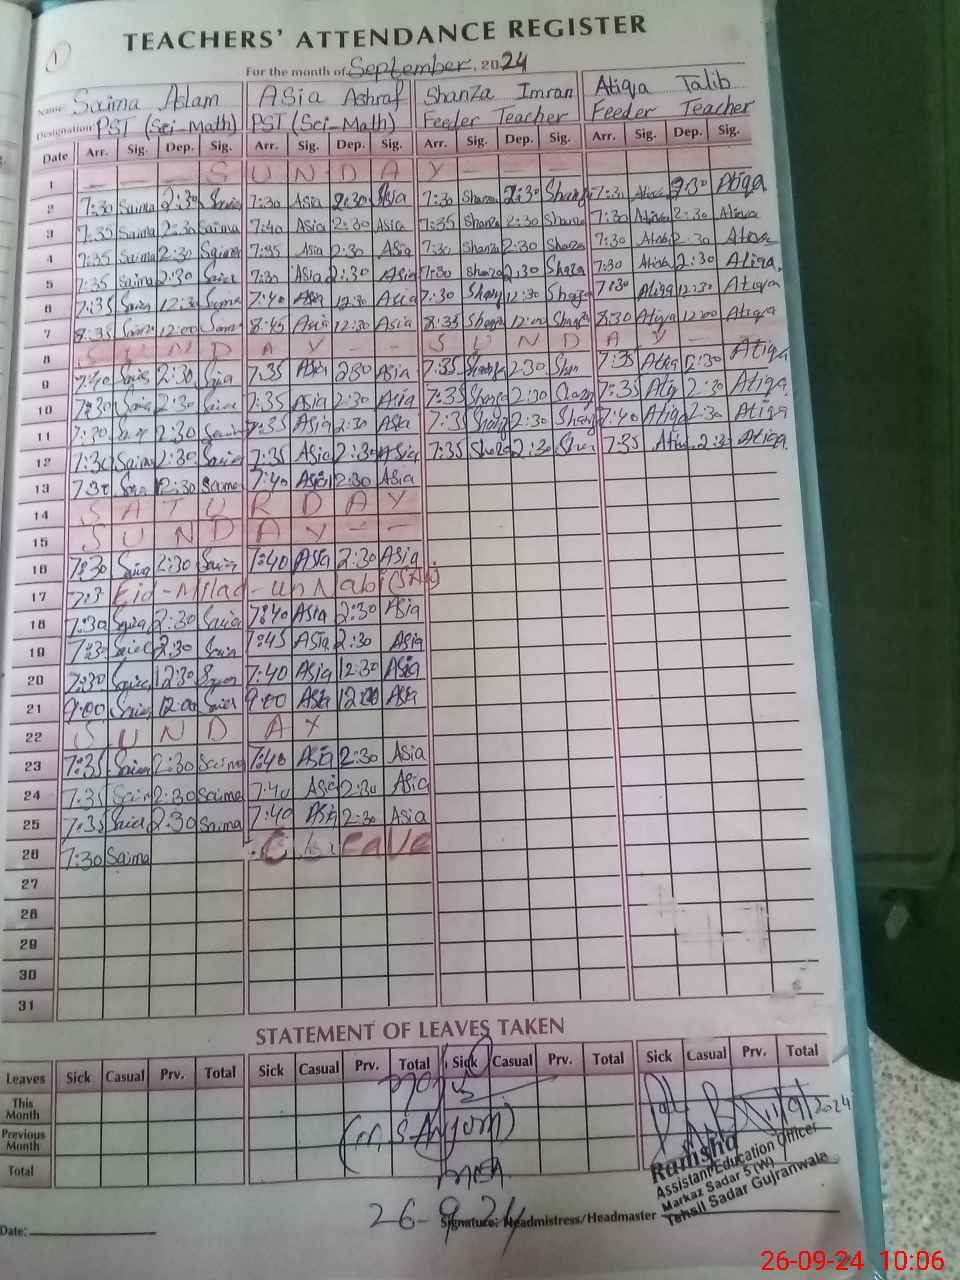 1
TEACHERS' ATTENDANCE REGISTER
For the month of September, 2024
Name: Saima Aslam Asia Ashraf Shanza Imran Atiqa Talib
Designation: PST (Sci-Math) PST (Sci-Math) Feeder Teacher Feeder Teacher
Date Arr. Sig. Dep. Sig. Arr. Sig. Dep. Sig. Arr. Sig. Dep. Sig. Arr. Sig. Dep. Sig.
1 - - - S U N D A Y - - -
2 7:30 Saima 2:30 Saima 7:30 Asia 2:30 Asia 7:30 Shanza 2:30 Shanza 7:30 Atiqa 2:30 Atiqa
3 7:35 Saima 2:30 Saima 7:40 Asia 2:30 Asia 7:35 Shanza 2:30 Shanza 7:30 Atiqa 2:30 Atiqa
4 7:35 Saima 2:30 Saima 7:35 Asia 2:30 Asia 7:30 Shanza 2:30 Shanza 7:30 Atiqa 2:30 Atiqa
5 7:35 Saima 2:30 Saima 7:30 Asia 2:30 Asia 7:30 Shanza 2:30 Shaza 7:30 Atiqa 2:30 Atiqa
6 7:35 Saima 12:30 Saima 7:40 Asia 12:30 Asia 7:30 Shanza 12:30 Shanza 7:30 Atiqa 12:30 Atiqa
7 8:35 Saima 12:00 Saima 8:45 Asia 12:30 Asia 8:35 Shanza 12:00 Shanza 8:30 Atiqa 12:00 Atiqa
8 S U N D A Y - - S U N D A Y -
9 7:40 Saima 2:30 Saima 7:35 Asia 2:30 Asia 7:35 Shanza 2:30 Shan 7:35 Atiqa 2:30 Atiqa
10 7:30 Saima 2:30 Saima 7:35 Asia 2:30 Asia 7:35 Shanza 2:30 Shanza 7:35 Atiq 2:30 Atiqa
11 7:30 Saima 2:30 Saima 7:35 Asia 2:30 Asia 7:35 Shanza 2:30 Shanza 7:40 Atiqa 2:30 Atiqa
12 7:30 Saima 2:30 Saima 7:35 Asia 2:30 Asia 7:35 Shaza 2:30 Shan 7:35 Atiqa 2:30 Atiqa
13 7:30 Saima 12:30 Saima 7:40 Asia 12:30 Asia
14 S A T U R D A Y
15 S U N D A Y - -
16 7:30 Saima 2:30 Saima 7:40 Asia 2:30 Asia
17 7:3 Eid-Milad-un Nabi (SAW)
18 7:30 Saima 2:30 Saima 7:40 Asia 2:30 Asia
19 7:30 Saima 2:30 Saima 7:45 Asia 2:30 Asia
20 7:30 Saima 12:30 Saima 7:40 Asia 12:30 Asia
21 9:00 Saima 12:00 Saima 9:00 Asia 12:00 Asia
22 S U N D A Y
23 7:35 Saima 2:30 Saima 7:40 Asia 2:30 Asia
24 7:35 Saima 2:30 Saima 7:40 Asia 2:30 Asia
25 7:35 Saima 2:30 Saima 7:40 Asia 2:30 Asia
26 7:30 Saima C. Leave
27
28
29
30
31
STATEMENT OF LEAVES TAKEN
Leaves Sick Casual Prv. Total Sick Casual Prv. Total Sick Casual Prv. Total Sick Casual Prv. Total
This Month
Previous Month
Total
(M S Anjum)
MEA
26-9-24
11/9/2024
Ramsha
Assistant Education Officer
Markaz Sadar 5 (W)
Tehsil Sadar Gujranwala
Date:
Signature: Headmistress/Headmaster
26-09-24 10:06